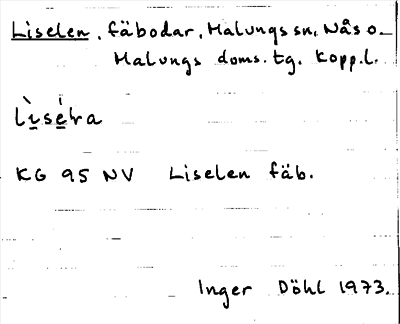 Liselen, fäbodar, Malungs sn, Nås o-
Malungs doms. tg. Kopp. l.
KG 95 NV Liselen fäb.
Inger Döhl 1973.